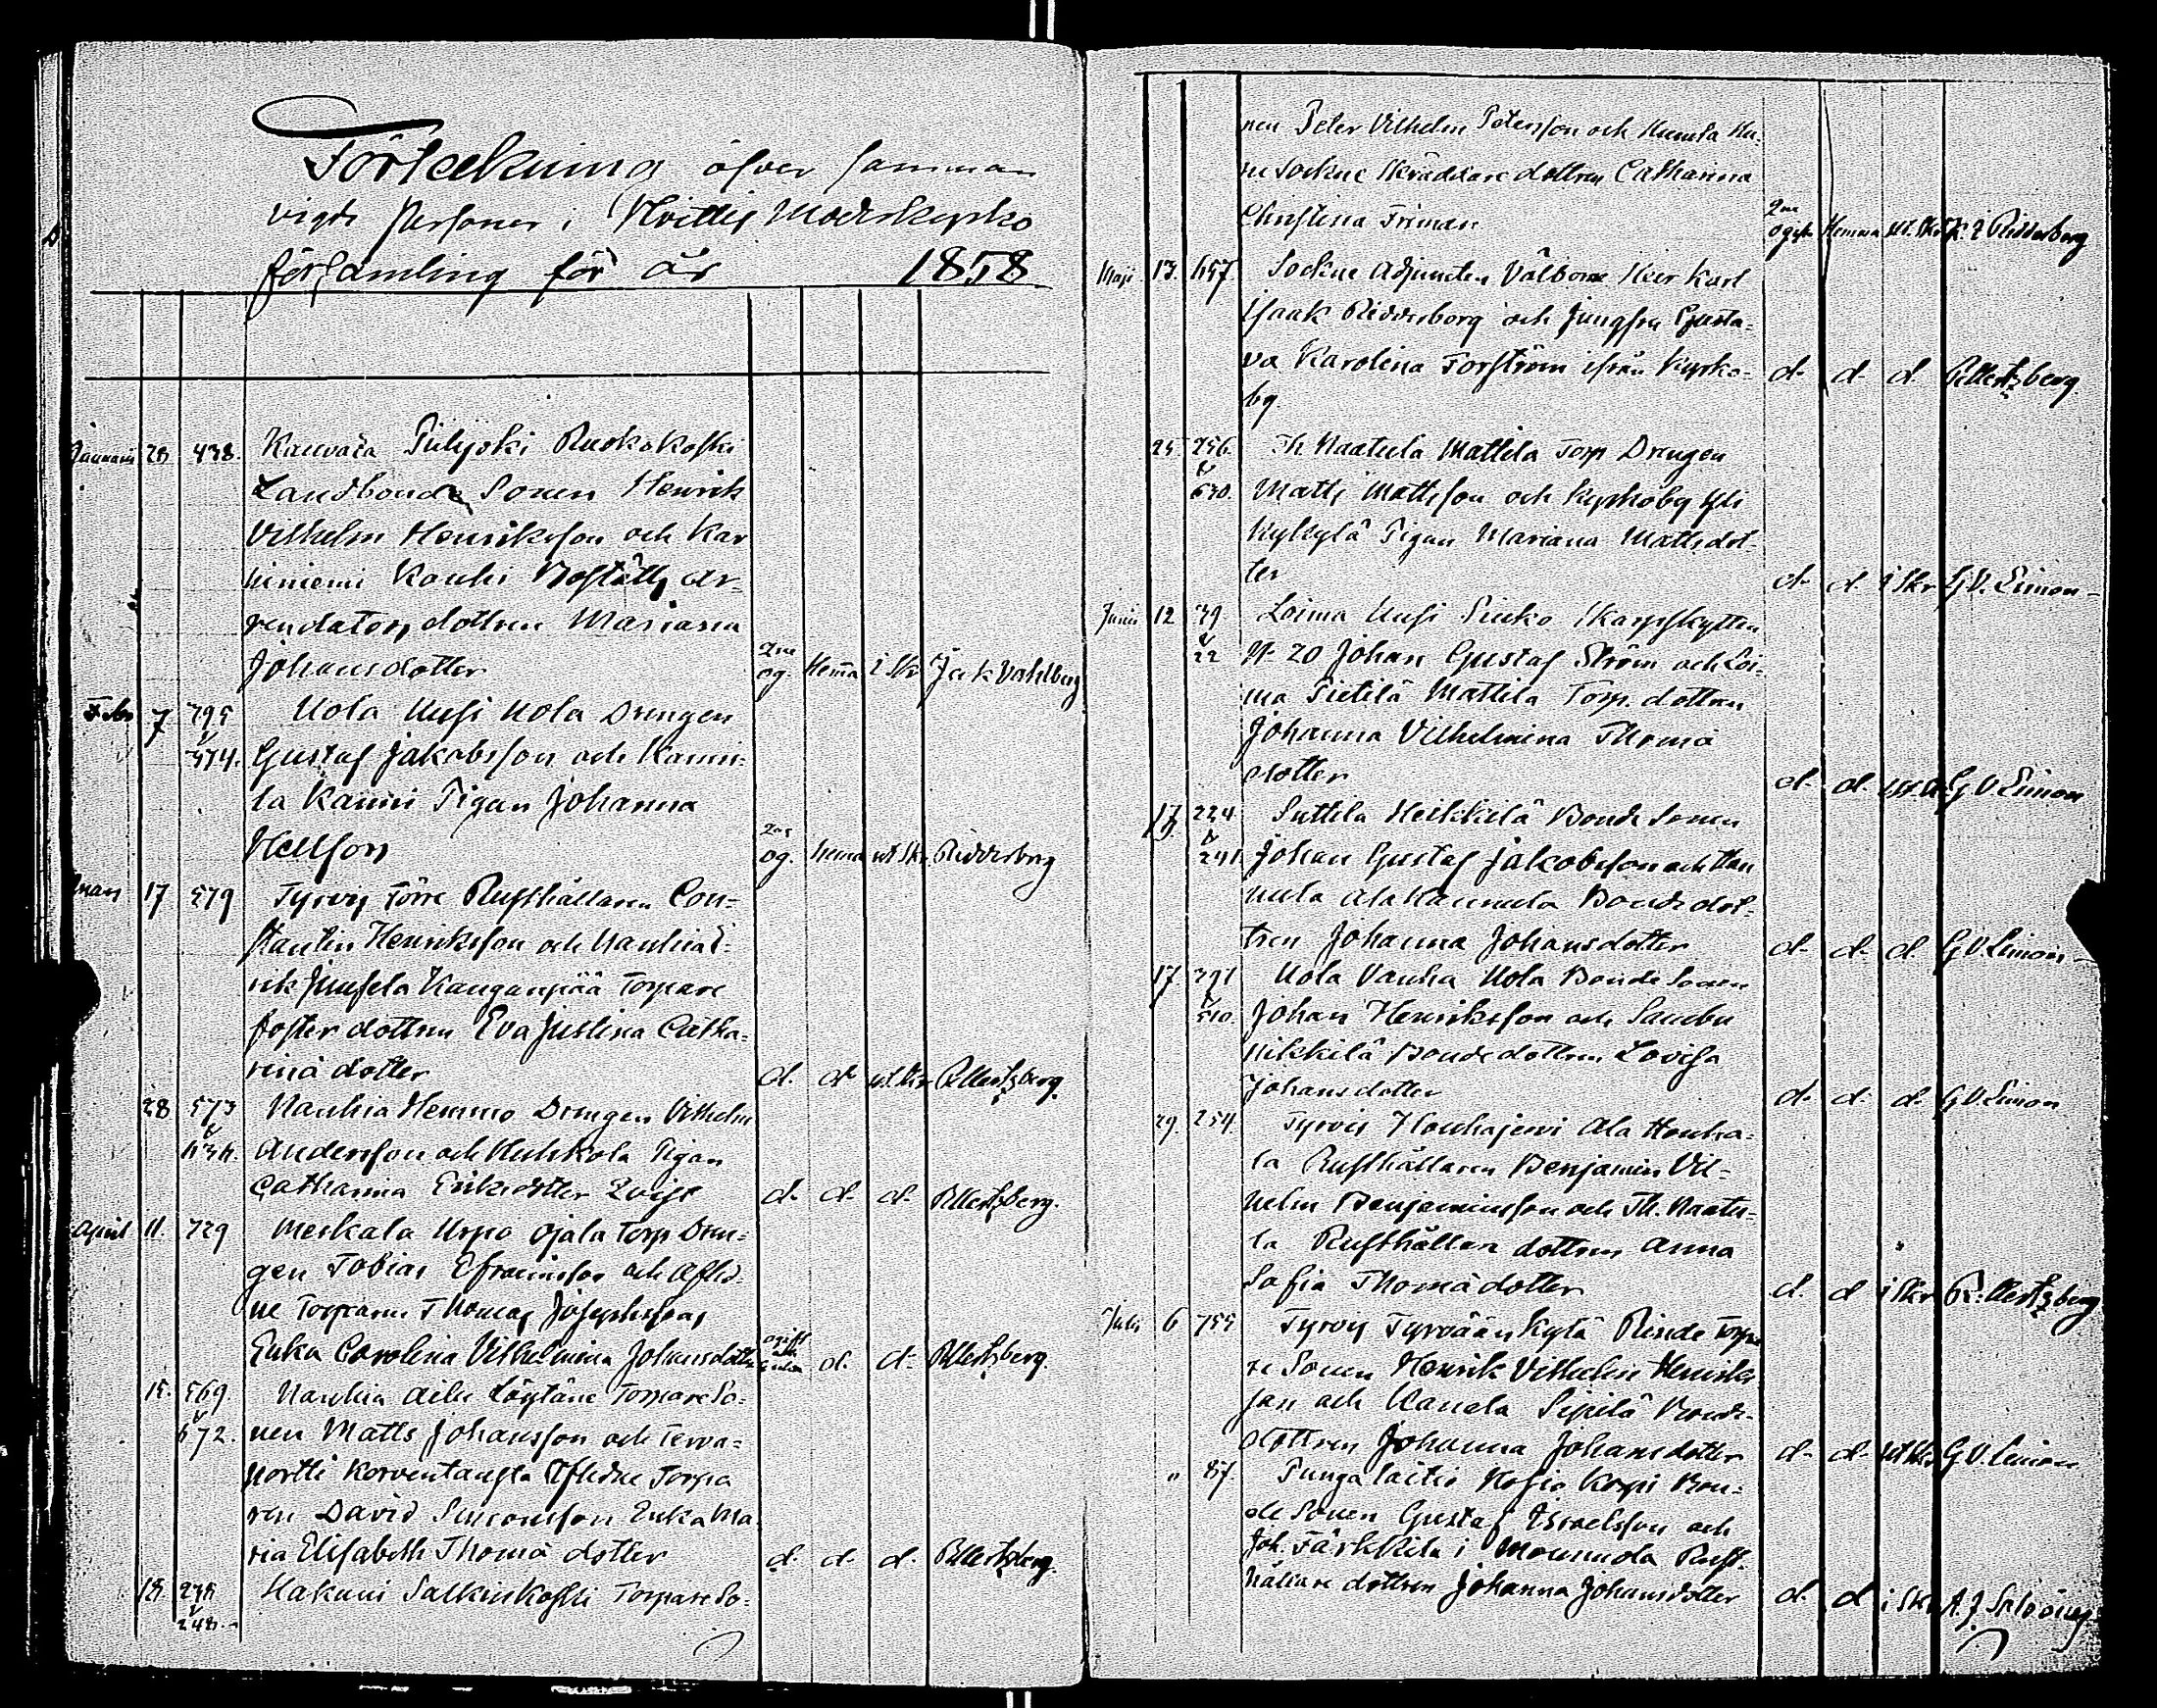 Förteckning öfver samman
vigde Personer i Hvittis Moderkyrko
församling för år 1858
Januarii 28 438. Kauvatsa Puljoki Ruokakoski
Landbonde Sonen Henrik
Vilhelm Henriksson och Kar
hiniemi Kouhi Boställs Ar-
rendators dottren Mariana
Johansdotter og. Hema i Skr Jak Vahlberg
Febr 7 795 Uola Uusi Uola Drengen
& 374. Gustaf Jakobsson och Kanni-
la Kanni Pigan Johanna
Hellsson og. hema ut Skr Ridderborg
Mars 17 579 Tyrvis Törre Rusthållaren Con-
stantin Henriksson och Nanhia E-
rik Junsela Kanganpää Torpare
foster dottren Eva Justina Catha-
rina dotter d. d. ut Skr R Mertzberg.
28 573 Nanhia Hemmo Drengen Vilhelm
& 434. Andersson och Huhkola Pigan
Catharina Eriksdotter Qvist d. d. d. R Mertzberg.
April 11. 729 Meskala Uspo Ojala Torp Dren-
gen Tobias Efraimsson och Aflid-
ne Torparen Thomas Josephssons
Enka Carolina Vilhelmina Johansdotter ogift och Enka d. d. R Mertzberg.
15. 569. Nanhia Aila Löytäne Torpare So-
& 672. nen Matts Johansson och Terva-
hortti Korventausta Aflidne Torpa
ren David Simonsson Enka Ma
ria Elisabeth Thomä dotter d. d. d. R Mertzberg.
18. 248. Hakuni Salkinkoski Torpare So-
nen Peter Vilhelm Petersson och Kumla Ku-
ne Sockne Skräddare dottren Catharina
Christina Friman ogift Hemma ut. Skr K. I Ridderborg
Maji 13. 657. Sockne Adjuncten Välborne Herr Karl
Isaak Ridderborg och Jungfru Gusta-
va Karolina Forström ifrån Kyrko- d. d. d. R Mertzberg.
by.
25. 256. Th Naatula Mattila Torp Drengen
& 630. Matts Mattsson och Kyrkoby Yli
Kylkylä Pigan Mariana Mattsdot-
ter d. d. i Skr G V. Limon
Junii 12 39 Loima Uusi Sinko Skarpskytten
& 22 N- 20 Johan Gustaf Ström och Loi-
ma Pietilä Mattila Torp. dottren
Johanna Vilhelmina Thomä
dotter d. d. G V Limon
17. 224 Suttila Heikkilä Bonde Sonen
& 241 Johan Gustaf Jakobsson och Han
nula Ala Hannula Bonde dot-
tren Johanna Johansdotter d. d. d. G V. Limon
17. 391 Uola Vanha Uola Bonde Sonen
& 510. Johan Henriksson och Sambu
Nikkilä Bonde dottren Lovisa
Johansdotter d. d. d. G V. Limon
29. 254. Tyrvis Houhajervi Ala Houha-
la Rusthållaren Benjamin Vil-
helm Benjaminsson och Th. Naatu-
la Rusthållare dottren Anna
Sofia Thomädotter d. d i Skr R. Mertzberg
Julii 6 755 Tyrvis Tyrvään Kylä Rinde Torpa
re Sonen Henrik Vilhelm Henriks
son och Ranela Sipilä Bonde-
dottren Johanna Johansdotter d. d. ut Skr G V. Limon
" 87. Punga laitio Kosio Korpi Bon-
de Sonen Gustaf Israelsson och
Joh. Färkkilä i Mounnola Rust-
hållare dottren Johanna Johansdotter d. d i Skr A. J Salvén